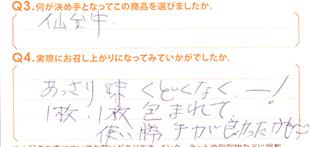 Q3.何が決め手となってこの商品を選びましたか。
仙台牛.
Q4.実際にお召し上がりになってみていかがでしたか。
あっさり味くどくなく、ー!
1枚、1枚包まれて
使い勝手が良かった